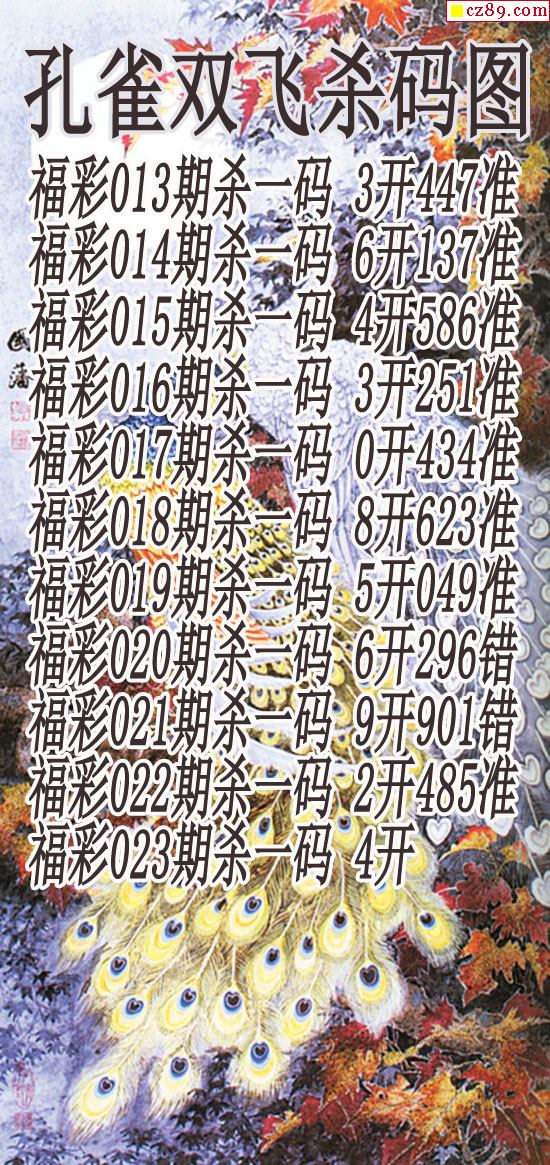 cz89.com
孔雀双飞杀码图
福彩013期杀一码 3开447准
福彩014期杀一码 6开137准
福彩015期杀一码 4开586准
福彩016期杀一码 3开251准
福彩017期杀一码 0开434准
福彩018期杀一码 8开623准
福彩019期杀一码 5开049准
福彩020期杀一码 6开296错
福彩021期杀一码 9开901错
福彩022期杀一码 2开485准
福彩023期杀一码 4开